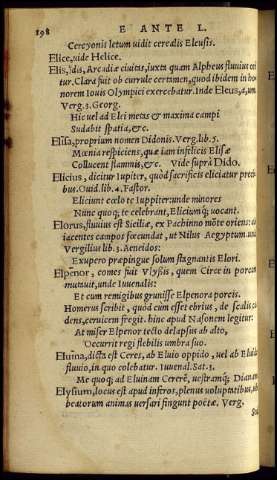 198 E ANTE L.
Cercyonis letum uidit cerealis Eleusis.
Elice, uide Helice.
Elis, idis, Arcadiæ ciuitas, iuxta quam Alpheus fluuius ori
tur. Clara fuit ob currule certamen, quod ibidem in ho
norem Iouis Olympici exercebatur. Inde Eleus, a, um
Verg. 3. Georg.
Hic uel ad Elei metas & maxima campi
Sudabit spatia, &c.
Elisa, proprium nomen Didonis. Verg. lib. 5.
Mœnia respiciens, quæ iam infelicis Elisæ
Collucent flammis, &c. Vide suprà Dido.
Elicius, dicitur Iupiter, quòd sacrificijs eliciatur preci
bus. Ouid. lib. 4. Fastor.
Eliciunt cœlo te Iuppiter: unde minores
Nunc quoq; te celebrant, Eliciumq; uocant.
Elorus, fluuius est Siciliæ, ex Pachinno mõte oriens: ad
iacentes campos fœcundat, ut Nilus Aegyptum
Vergilius lib. 3. Aeneidos:
Exupero præpingue solum stagnantis Elori.
Elpenor, comes fuit Vlyssis, quem Circe in porcum
mutauit, unde Iuuenalis:
Et cum remigibus grunisse Elpenora porcis.
Homerus scribit, quòd cum esset ebrius, de scalis ca
dens, ceruicem fregit. hinc apud Nasonem legitur:
At miser Elpenor tecto delapsus ab alto,
Occurrit regi flebilis umbra suo.
Eluina, dicta est Ceres, ab Eluio oppido, uel ab
fluuio, in quo colebatur. Iuuenal. Sat. 3.
Me quoq; ad Eluinam Cererẽ, uestramq; Dianam
Elysium, locus est apud inferos, plenus uoluptatibus, ubi
beatorum animas uersari fingunt poëtæ. Verg.